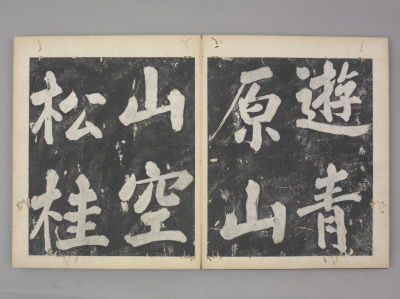 遊青
原山
山空
松桂